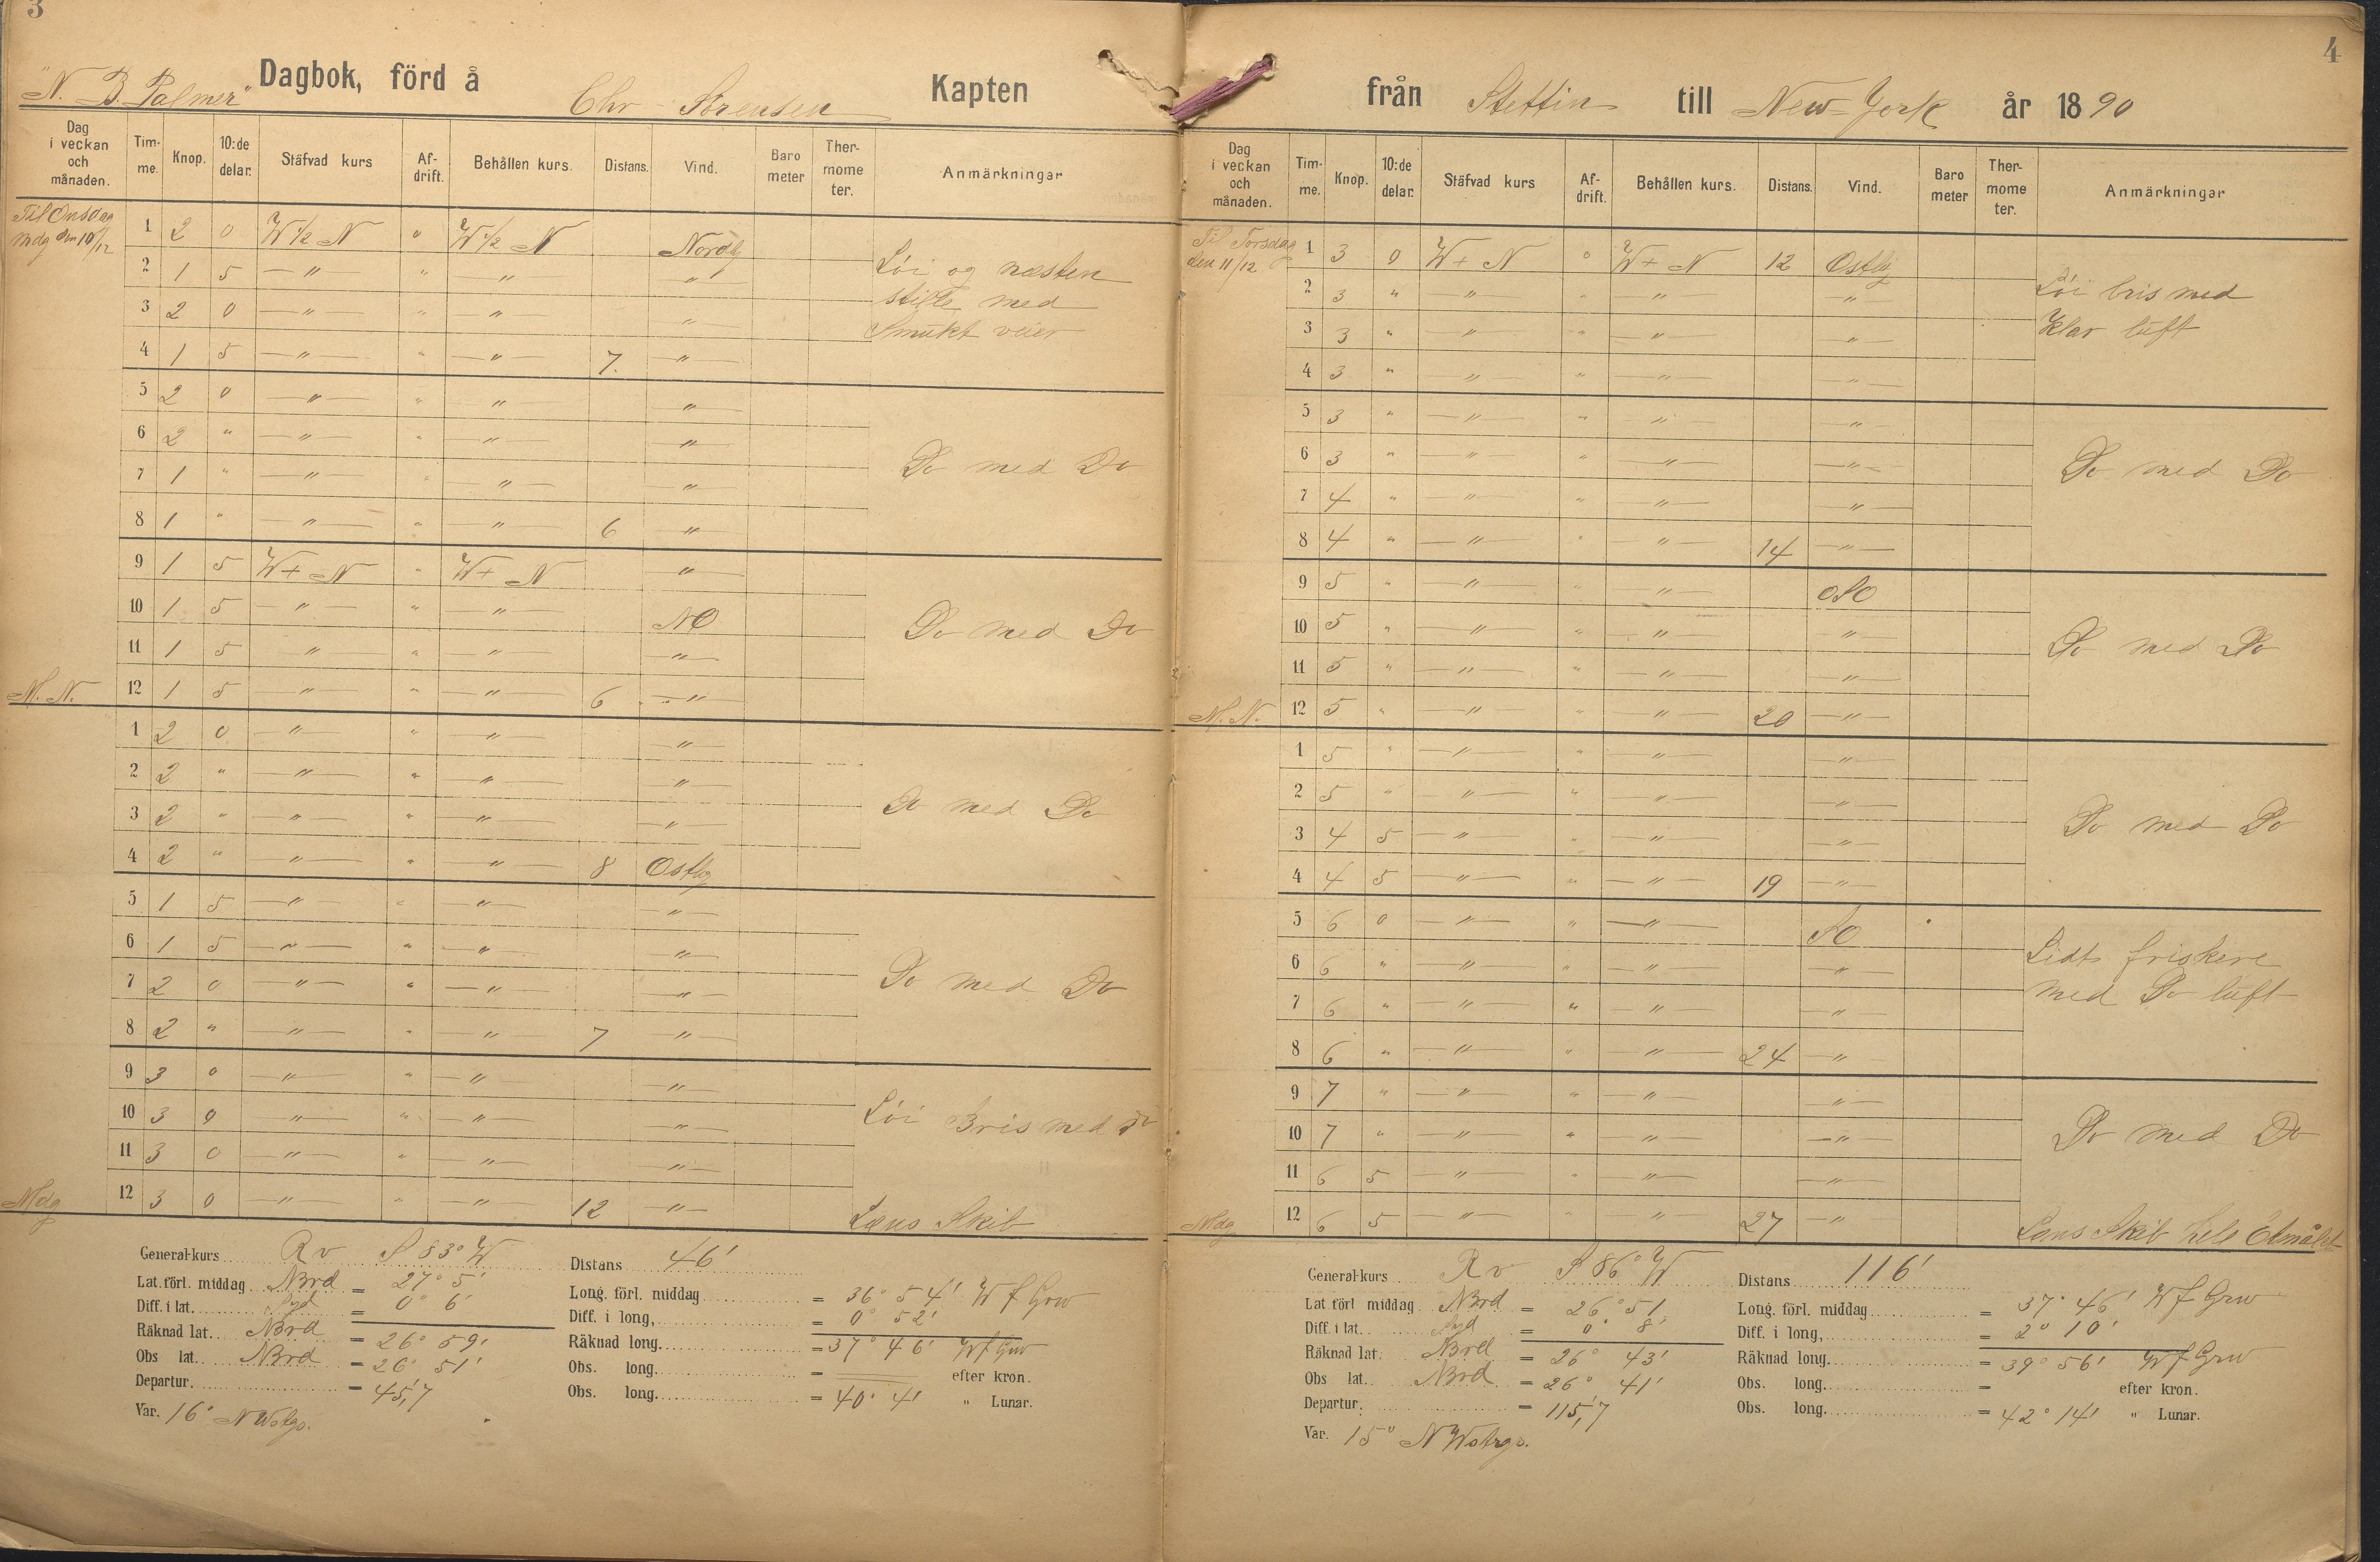 3
"N. B. Palmer" Dagbok, förd å Chr Sörensen Kapten
Dag i veckan och månaden. Tim-me. Knop. 10:de delar. Stäfvad kurs Af-drift. Behållen kurs. Distans. Vind. Baro meter Ther-mome ter. Anmärkningar
Til Onsdag
Mdg den 10/12
1 2 0 W ½ N 0 W ½ N Nordlg
2 1 5 — " — " — " — — " — Löi og næsten
3 2 0 — " — " — " — — " — stille med
4 1 5 — " — " — " — 7. — " — Smukt veier
5 2 0 — " — " — " — — " —
6 2 " — " — " — " — — " — Do med Do
7 1 " — " — " — " — — " —
8 1 " — " — " — " — 6 — " —
9 1 5 W + N " W + N — " —
10 1 5 — " — " — " — NO Do med Do
11 1 5 — " — " — " — — " —
M. N. 12 1 5 — " — " — " — 6 — " —
1 2 0 — " — " — " — — " —
2 2 " — " — " — " — — " —
3 2 " — " — " — " — — " — Do med Do
4 2 " — " — " — " — 8 Ostlg
5 1 5 — " — " — " — — " —
6 1 5 — " — " — " — — " —
7 2 0 — " — " — " — — " — Do med Do
8 2 " — " — " — " — 7 — " —
9 3 0 — " — " — " — — " —
10 3 0 — " — " — " — — " — Löi Bris med do
11 3 0 — " — " — " — — " —
Mdg 12 3 0 — " — " — " — 12 — " — Læns Skib
General-kurs Rv S 83° W Distans 46'
Lat. förl. middag Nord = 27° 5' Long. förl. middag = 36° 54' W f Grw
Diff. i lat. Syd = 0° 6' Diff. i long, = 0° 52'
Räknad lat. Nord = 26° 59' Räknad long. = 37° 46' W f Grw
Obs lat. Nord = 26° 51' Obs. long. = efter kron.
Departur. = 45,'7 Obs. long. = 40° 4' " Lunar.
Var. 16° NWstgs.
4
från Stettin till New-York år 1890
Dag i veckan och månaden. Tim-me. Knop. 10:de delar. Stäfvad kurs Af-drift. Behållen kurs. Distans. Vind. Baro meter Ther-mome ter. Anmärkningar
Til Torsdag
den 11/12
1 3 0 W + N 0 W + N 12 Ostlg
2 3 " " " — " — — " — Löi bris med
3 3 " — " — " — " — — " — Klar luft
4 3 " — " — " — " — — " —
5 3 " — " — " — " — — " —
6 3 " — " — " — " — — " — Do med Do
7 4 " — " — " — " — — " —
8 4 " — " — " — " — 14 — " —
9 5 " — " — " — " — OSO
10 5 " — " — " — " — — " —
11 5 " — " — " — " — — " — Do med Do
M. N. 12 5 " — " — " — " — 20 — " —
1 5 " — " — " — " — — " —
2 5 " — " — " — " — — " —
3 4 5 — " — " — " — — " — Do med Do
4 4 5 — " — " — " — 19 — " —
5 6 0 — " — " — " — SO
6 6 " — " — " — " — — " — Lidt friskere
7 6 " — " — " — " — — " — med Do luft
8 6 " — " — " — " — 24 — " —
9 7 " — " — " — " — — " —
10 7 " — " — " — " — — " — Do med Do
11 6 5 — " — " — " — — " —
Mdg 12 6 5 — " — " — " — 27 — " — Læns Skib hele Etmålet
General-kurs Rv S 86° W Distans 116'
Lat förl middag Nord = 26° 51 Long. förl. middag = 37° 46' W f Grw
Diff. i lat. Syd = 0° 8' Diff. i long, = 2° 10'
Räknad lat. Nord = 26° 43' Räknad long. = 39° 56' W f Grw
Obs lat. Nord = 26° 41' Obs. long. = efter kron.
Departur. = 115,'7 Obs. long. = 42° 14' " Lunar.
Var. 15° NWstrgs.